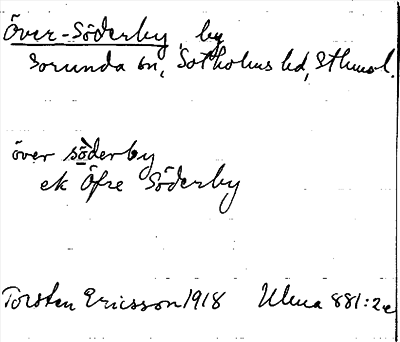 Över-Söderby, by
Sorunda sn, Sotholms hd, Sthmsl.
över söderby
ek Öfre Söderby
Torsten Ericsson 1918 Ulma 881:2c